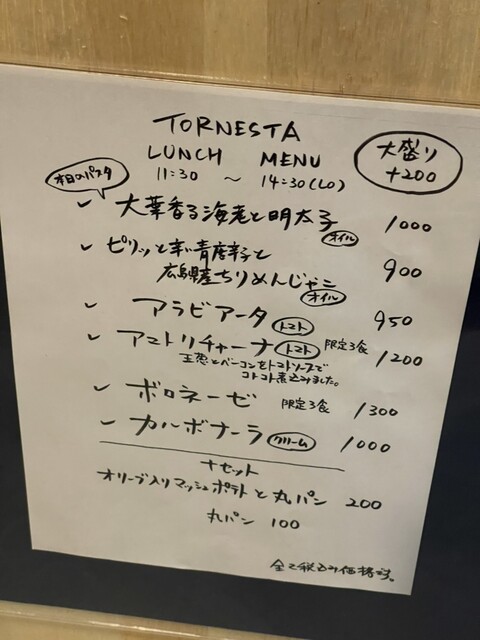 TORNESTA
LUNCH MENU
11:30 ~ 14:30(LO)
大盛り
+200
本日のパスタ
✓ 大葉香る海老と明太子 オイル 1000
✓ ピリッと辛い青唐辛子と
広島県産ちりめんじゃこ オイル 900
✓ アラビアータ トマト 950
✓ アマトリチャーナ トマト 限定3食 1200
玉葱とベーコンをトマトソースで
コトコト煮込みました。
✓ ボロネーゼ 限定3食 1300
✓ カルボナーラ クリーム 1000
+セット
オリーブ入りマッシュポテトと丸パン 200
丸パン 100
全て税込み価格です。